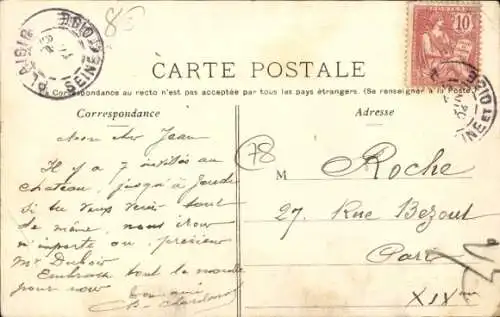 86
PLAISIR
SEINE ET OISE
10
CARTE POSTALE
La Correspondance au recto n'est pas acceptée par tous les pays étrangers. (Se renseigner à la Poste.)
Correspondance
Adresse
Mon cher Jean
Il y a 7 invités au
château, jusqu'à Jeudi
si tu veux venir tout
de même, nous irons
n'importe où, prévenir
Mr Dubois
Embrasse tout le monde
pour nous
ton ami
78
M Roche
27, Rue Bezout
Paris
XIVme